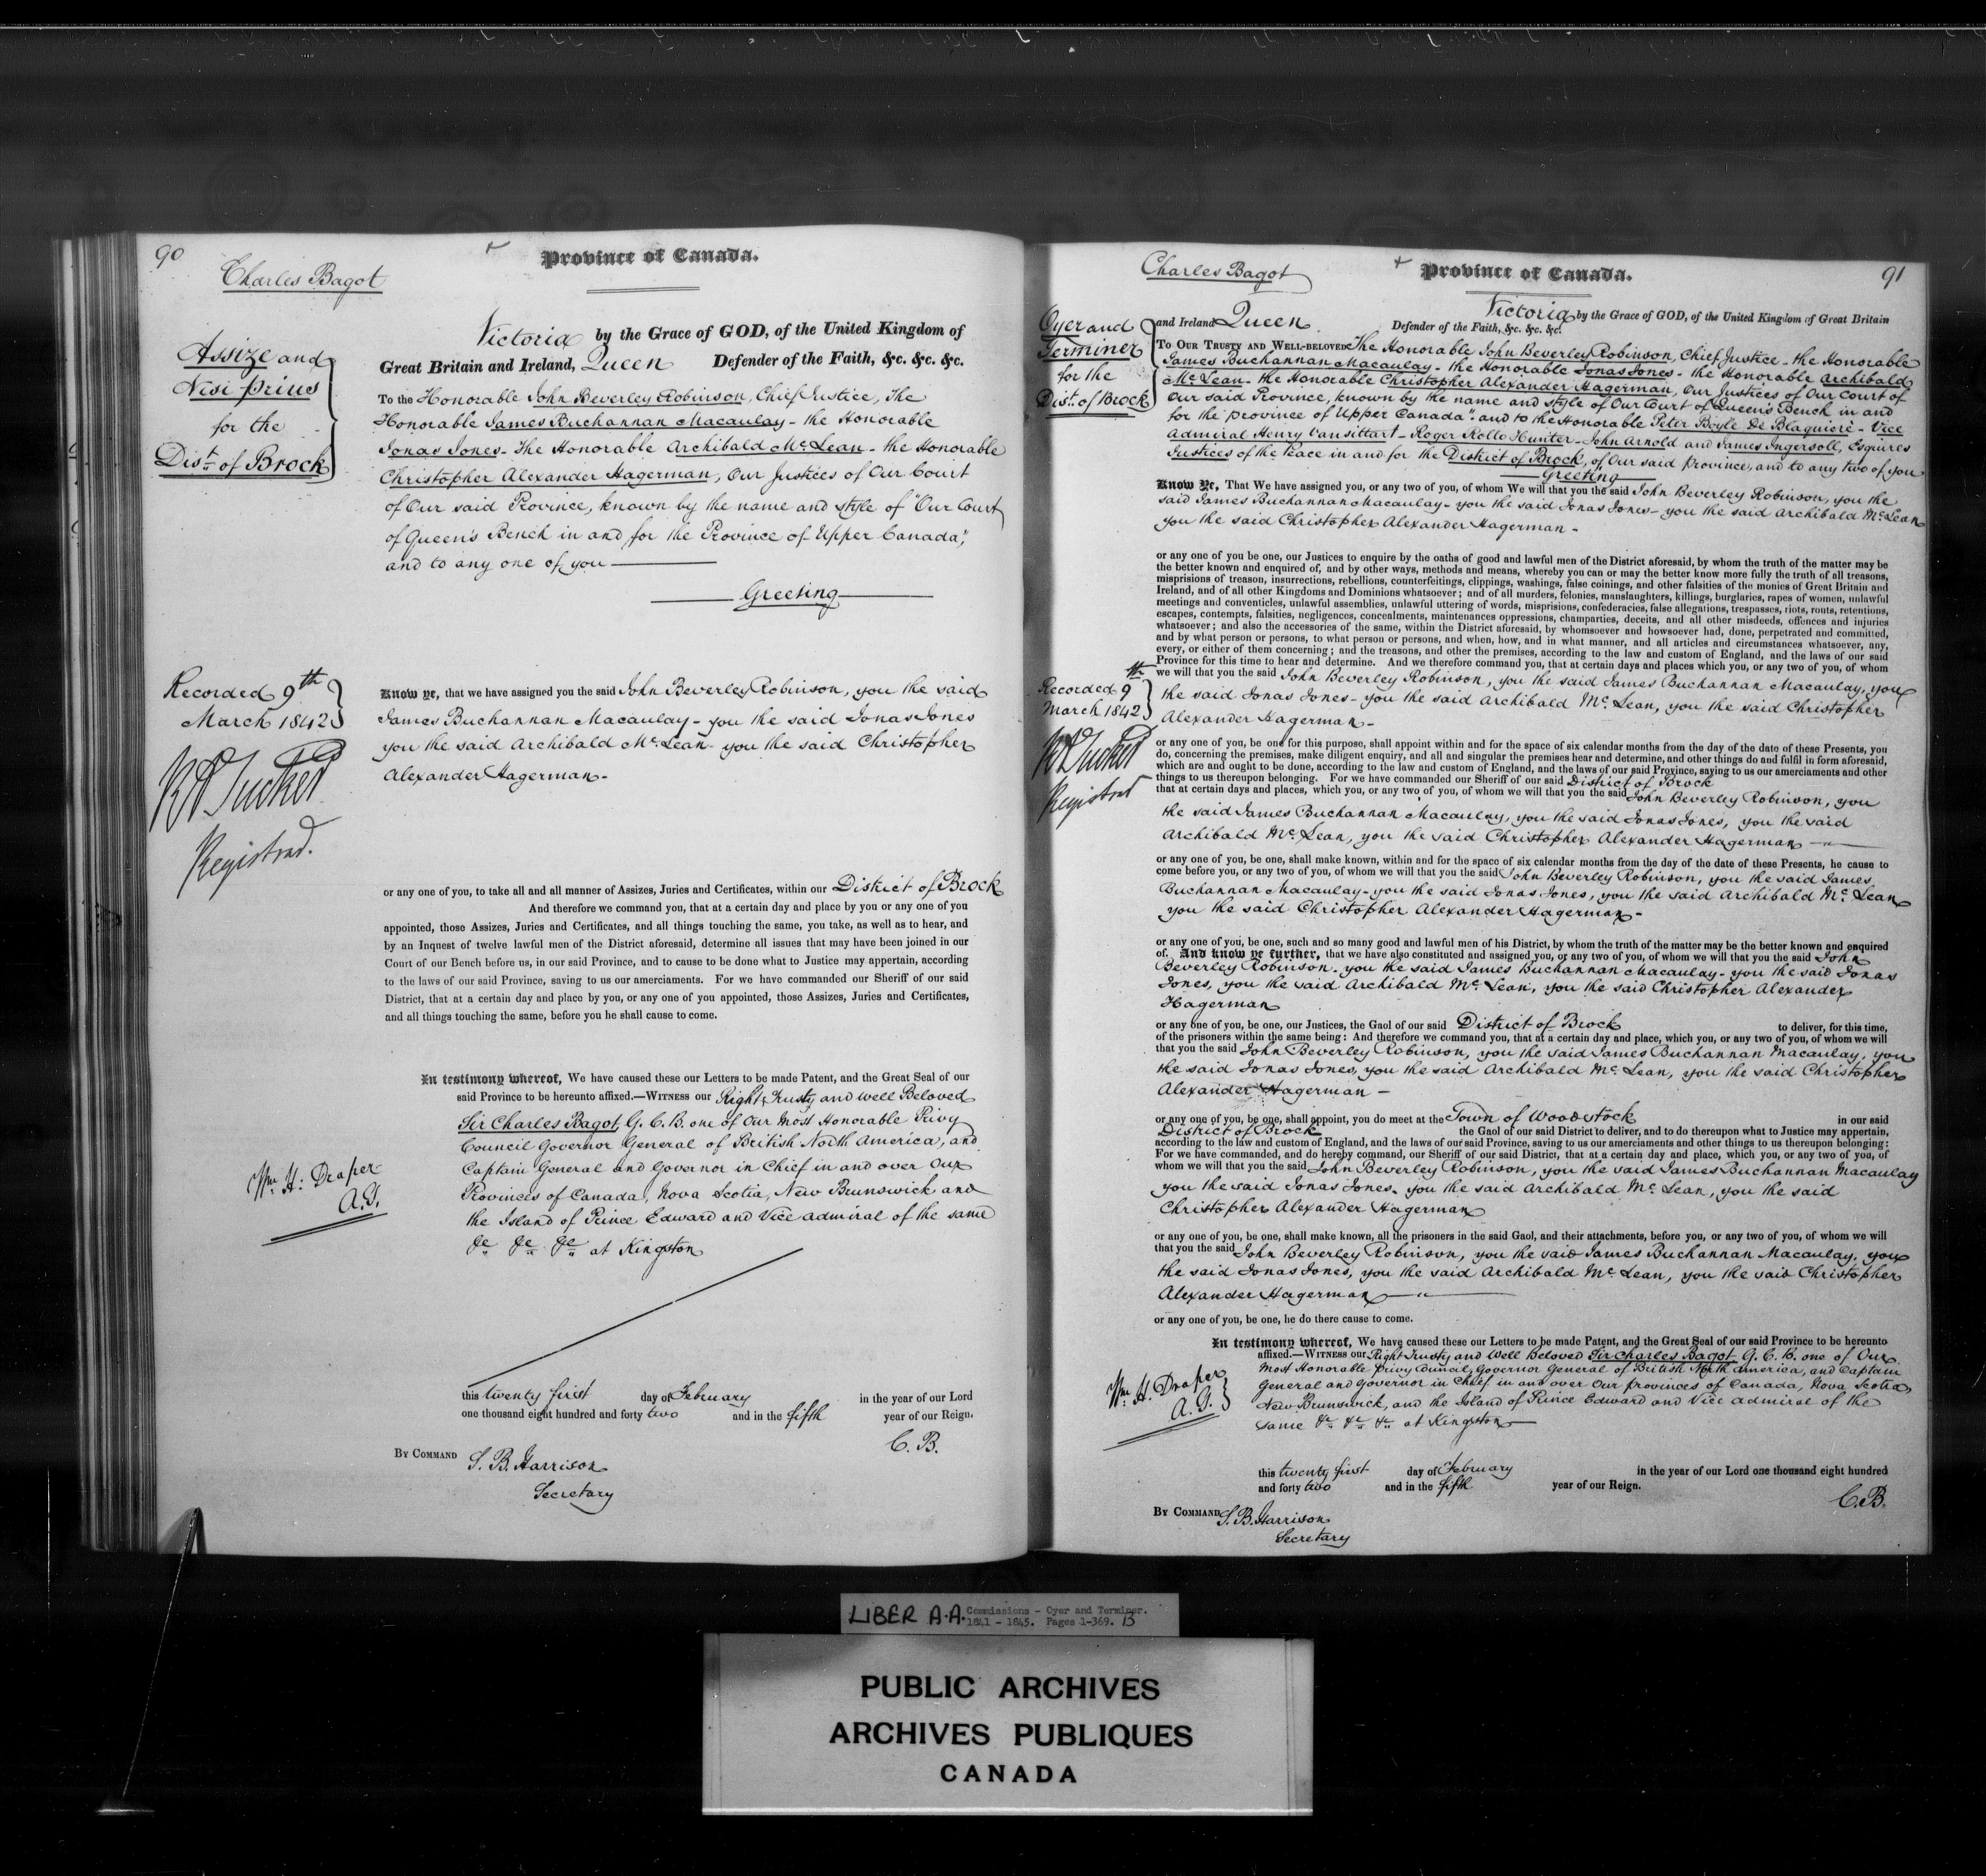 90
Charles Bagot
Province of Canada.
Assize and
Nisi prius
for the
Dist. of Brock
Victoria by the Grace of GOD, of the United Kingdom of
Great Britain and Ireland, Queen Defender of the Faith, &c. &c. &c.
To the Honorable John Beverley Robinson, Chief Justice, The
Honorable James Buchannan Macaulay - the Honorable
Jonas Jones - The Honorable Archibald Mc. Lean - the Honorable
Christopher Alexander Hagerman, Our Justices of Our Court
of Our said Province, known by the name and style of "Our Court
of Queen's Bench in and for the Province of Upper Canada",
and to any one of you
Greeting
Recorded 9th
March 1842
RA Tucker
Registrar.
Know ye, that we have assigned you the said John Beverley Robinson, you the said
James Buchannan Macaulay - you the said Jonas Jones
you the said Archibald Mc. Lean - you the said Christopher
Alexander Hagerman -
or any one of you, to take all and all manner of Assizes, Juries and Certificates, within our District of Brock
And therefore we command you, that at a certain day and place by you or any one of you
appointed, those Assizes, Juries and Certificates, and all things touching the same, you take, as well as to hear, and
by an Inquest of twelve lawful men of the District aforesaid, determine all issues that may have been joined in our
Court of our Bench before us, in our said Province, and to cause to be done what to Justice may appertain, according
to the laws of our said Province, saving to us our amerciaments. For we have commanded our Sheriff of our said
District, that at a certain day and place by you, or any one of you appointed, those Assizes, Juries and Certificates,
and all things touching the same, before you he shall cause to come.
In testimony whereof, We have caused these our Letters to be made Patent, and the Great Seal of our
said Province to be hereunto affixed.—WITNESS our Right Trusty and Well Beloved
Sir Charles Bagot, G. C. B. one of Our Most Honorable Privy
Council Governor General of British North America, and
Captain General and Governor in Chief in and over Our
Provinces of Canada, Nova Scotia, New Brunswick and
the Island of Prince Edward and Vice Admiral of the same
&c &c &c at Kingston
Wm. H: Draper
A.G.
this twenty first day of February in the year of our Lord
one thousand eight hundred and forty two and in the fifth year of our Reign.
C. B.
BY COMMAND S. B. Harrison
Secretary
91
Charles Bagot
Province of Canada.
Oyer and
Terminer
for the
Dist. of Brock
Victoria by the Grace of GOD, of the United Kingdom of Great Britain
and Ireland Queen Defender of the Faith, &c. &c. &c.
TO OUR TRUSTY AND WELL-BELOVED The Honorable John Beverley Robinson, Chief Justice - the Honorable
James Buchannan Macaulay - the Honorable Jonas Jones - the Honorable Archibald
Mc. Lean - the Honorable Christopher Alexander Hagerman, Our Justices of Our Court of
Our said Province, known by the name and style of Our Court of Queen's Bench in and
for the province of Upper Canada". and to the Honorable Peter Boyle De Blaquiere - Vice
Admiral Henry Vansittart - Roger Rollo Hunter - John Arnold and James Ingersoll, Esquires
Justices of the Peace in and for the District of Brock, of Our said province, and to any two of you
Greeting
Know Ye, That We have assigned you, or any two of you, of whom We will that you the said John Beverley Robinson, you the
said James Buchannan Macaulay - you the said Jonas Jones - you the said Archibald Mc. Lean
you the said Christopher Alexander Hagerman -
or any one of you be one, our Justices to enquire by the oaths of good and lawful men of the District aforesaid, by whom the truth of the matter may be
the better known and enquired of, and by other ways, methods and means, whereby you can or may the better know more fully the truth of all treasons,
misprisions of treason, insurrections, rebellions, counterfeitings, clippings, washings, false coinings, and other falsities of the monies of Great Britain and
Ireland, and of all other Kingdoms and Dominions whatsoever; and of all murders, felonies, manslaughters, killings, burglaries, rapes of women, unlawful
meetings and conventicles, unlawful assemblies, unlawful uttering of words, misprisions, confederacies, false allegations, trespasses, riots, routs, retentions,
escapes, contempts, falsities, negligences, concealments, maintenances oppressions, champarties, deceits, and all other misdeeds, offences and injuries
whatsoever; and also the accessories of the same, within the District aforesaid, by whomsoever and howsoever had, done, perpetrated and committed,
and by what person or persons, to what person or persons, and when, how, and in what manner, and all articles and circumstances whatsoever, any,
every, or either of them concerning; and the treasons, and other the premises, according to the law and custom of England, and the laws of our said
Province for this time to hear and determine. And we therefore command you, that at certain days and places which you, or any two of you, of whom
we will that you the said John Beverley Robinson, you the said James Buchannan Macaulay, you
the said Jonas Jones - you the said Archibald Mc. Lean, you the said Christopher
Alexander Hagerman -
Recorded 9th
March 1842
RA Tucker
Registrar
or any one of you, be one for this purpose, shall appoint within and for the space of six calendar months from the day of the date of these Presents, you
do, concerning the premises, make diligent enquiry, and all and singular the premises hear and determine, and other things do and fulfil in form aforesaid,
which are and ought to be done, according to the law and custom of England, and the laws of our said Province, saying to us our amerciaments and other
things to us thereupon belonging. For we have commanded our Sheriff of our said District of Brock
that at certain days and places, which you, or any two of you, of whom we will that you the said John Beverley Robinson, you
the said James Buchannan Macaulay, you the said Jonas Jones, you the said
Archibald Mc. Lean, you the said Christopher Alexander Hagerman
or any one of you, be one, shall make known, within and for the space of six calendar months from the day of the date of these Presents, he cause to
come before you, or any two of you, of whom we will that you the said John Beverley Robinson, you the said James
Buchannan Macaulay - you the said Jonas Jones, you the said Archibald Mc. Lean
you the said Christopher Alexander Hagerman -
or any one of you, be one, such and so many good and lawful men of his District, by whom the truth of the matter may be the better known and enquired
of. And know ye further, that we have also constituted and assigned you, or any two of you, of whom we will that you the said John
Beverley Robinson - you the said James Buchannan Macaulay - you the said Jonas
Jones, you the said Archibald Mc. Lean, you the said Christopher Alexander
Hagerman
or any one of you, be one, our Justices, the Gaol of our said District of Brock to deliver, for this time,
of the prisoners within the same being: And therefore we command you, that at a certain day and place, which you, or any two of you, of whom we will
that you the said John Beverley Robinson, you the said James Buchannan Macaulay, you
the said Jonas Jones, you the said Archibald Mc. Lean, you the said Christopher
Alexander Hagerman -
or any one of you, be one, shall appoint, you do meet at the Town of Woodstock in our said
District of Brock the Gaol of our said District to deliver, and to do thereupon what to Justice may appertain,
according to the law and custom of England, and the laws of our said Province, saving to us our amerciaments and other things to us thereupon belonging:
For we have commanded, and do hereby command, our Sheriff of our said District, that at a certain day and place, which you, or any two of you, of
whom we will that you the said John Beverley Robinson, you the said James Buchannan Macaulay
you the said Jonas Jones, you the said Archibald Mc. Lean, you the said
Christopher Alexander Hagerman
or any one of you, be one, shall make known, all the prisoners in the said Gaol, and their attachments, before you, or any two of you, of whom we will
that you the said John Beverley Robinson, you the said James Buchannan Macaulay, you
the said Jonas Jones, you the said Archibald Mc. Lean, you the said Christopher
Alexander Hagerman
or any one of you, be one, he do there cause to come.
In testimony whereof, We have caused these our Letters to be made Patent, and the Great Seal of our said Province to be hereunto
affixed.—WITNESS our Right Trusty and Well Beloved Sir Charles Bagot, G. C. B. one of Our
Most Honorable Privy Council, Governor General of British North America, and Captain
General and Governor in Chief in and over Our provinces of Canada, Nova Scotia,
New Brunswick, and the Island of Prince Edward and Vice Admiral of the
same &c &c &c at Kingston
Wm. H. Draper
A.G.
this twenty first day of February in the year of our Lord one thousand eight hundred
and forty two and in the fifth year of our Reign.
C.B.
BY COMMAND S. B. Harrison
Secretary
LIBER A.A. Commissions - Oyer and Terminer.
1841 - 1845. Pages 1-369. B
PUBLIC ARCHIVES
ARCHIVES PUBLIQUES
CANADA